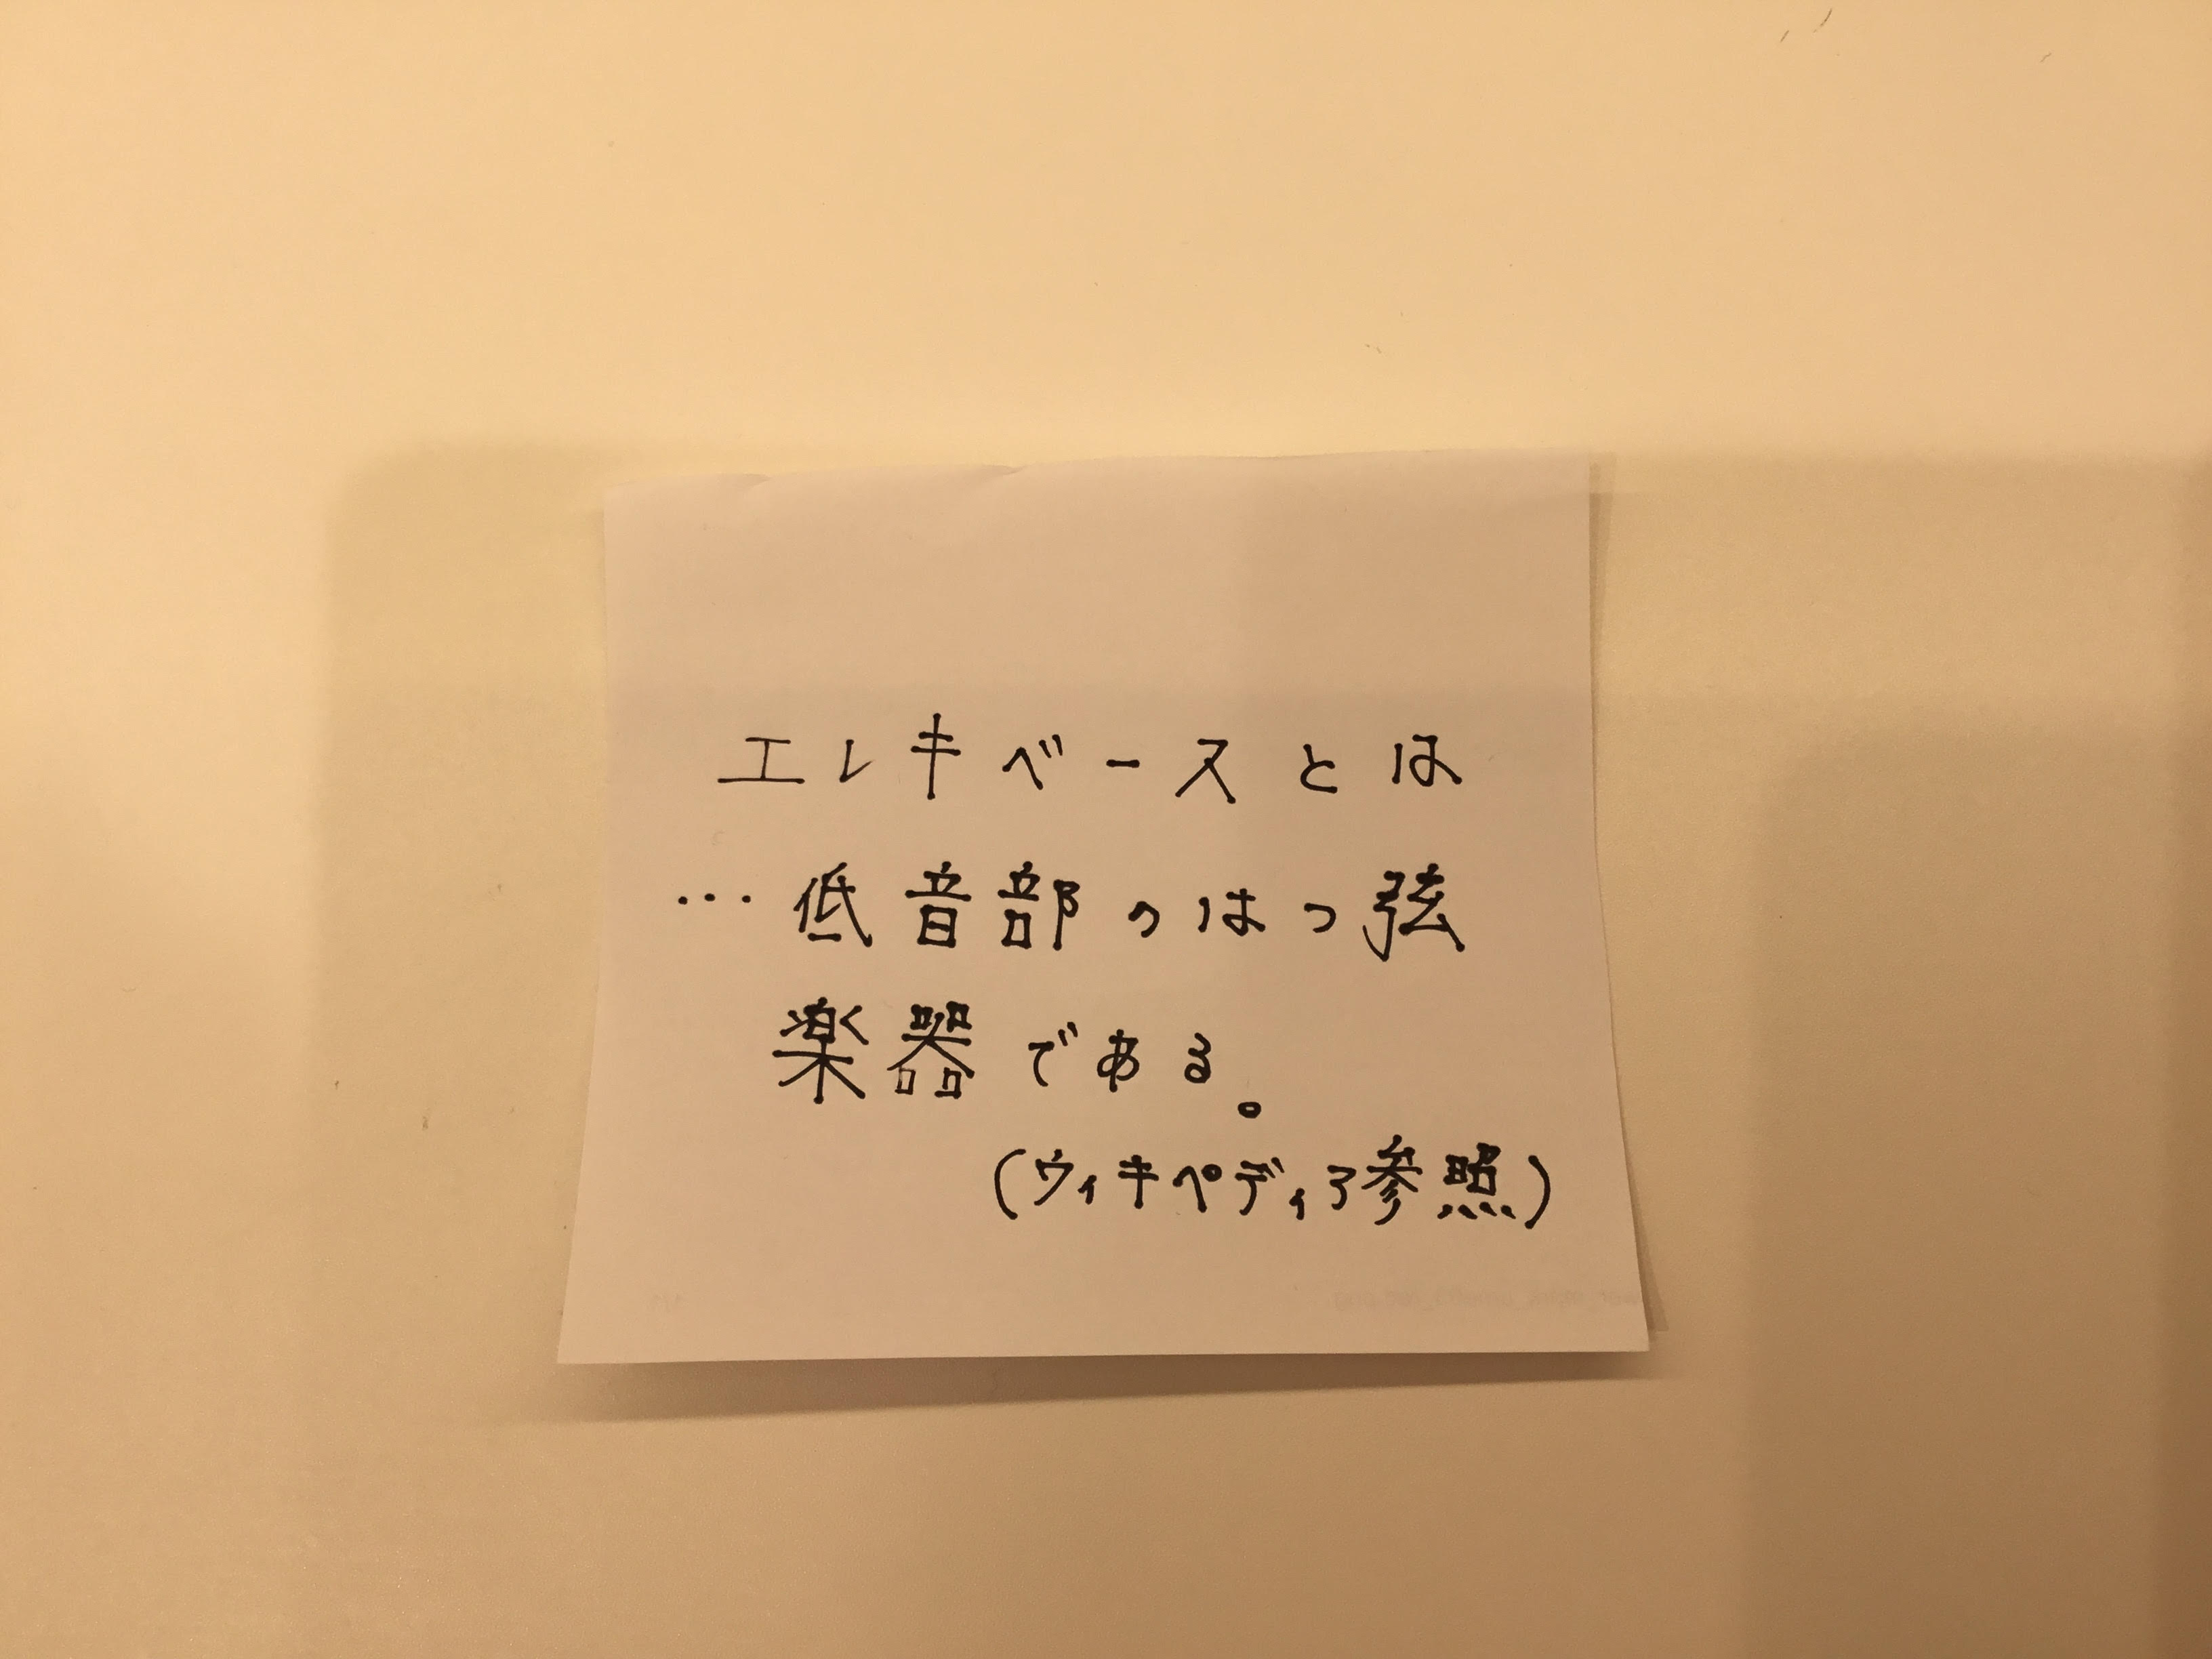 エレキベースとは
…低音部のはっ弦
楽器である。
(ウィキペディア参照)